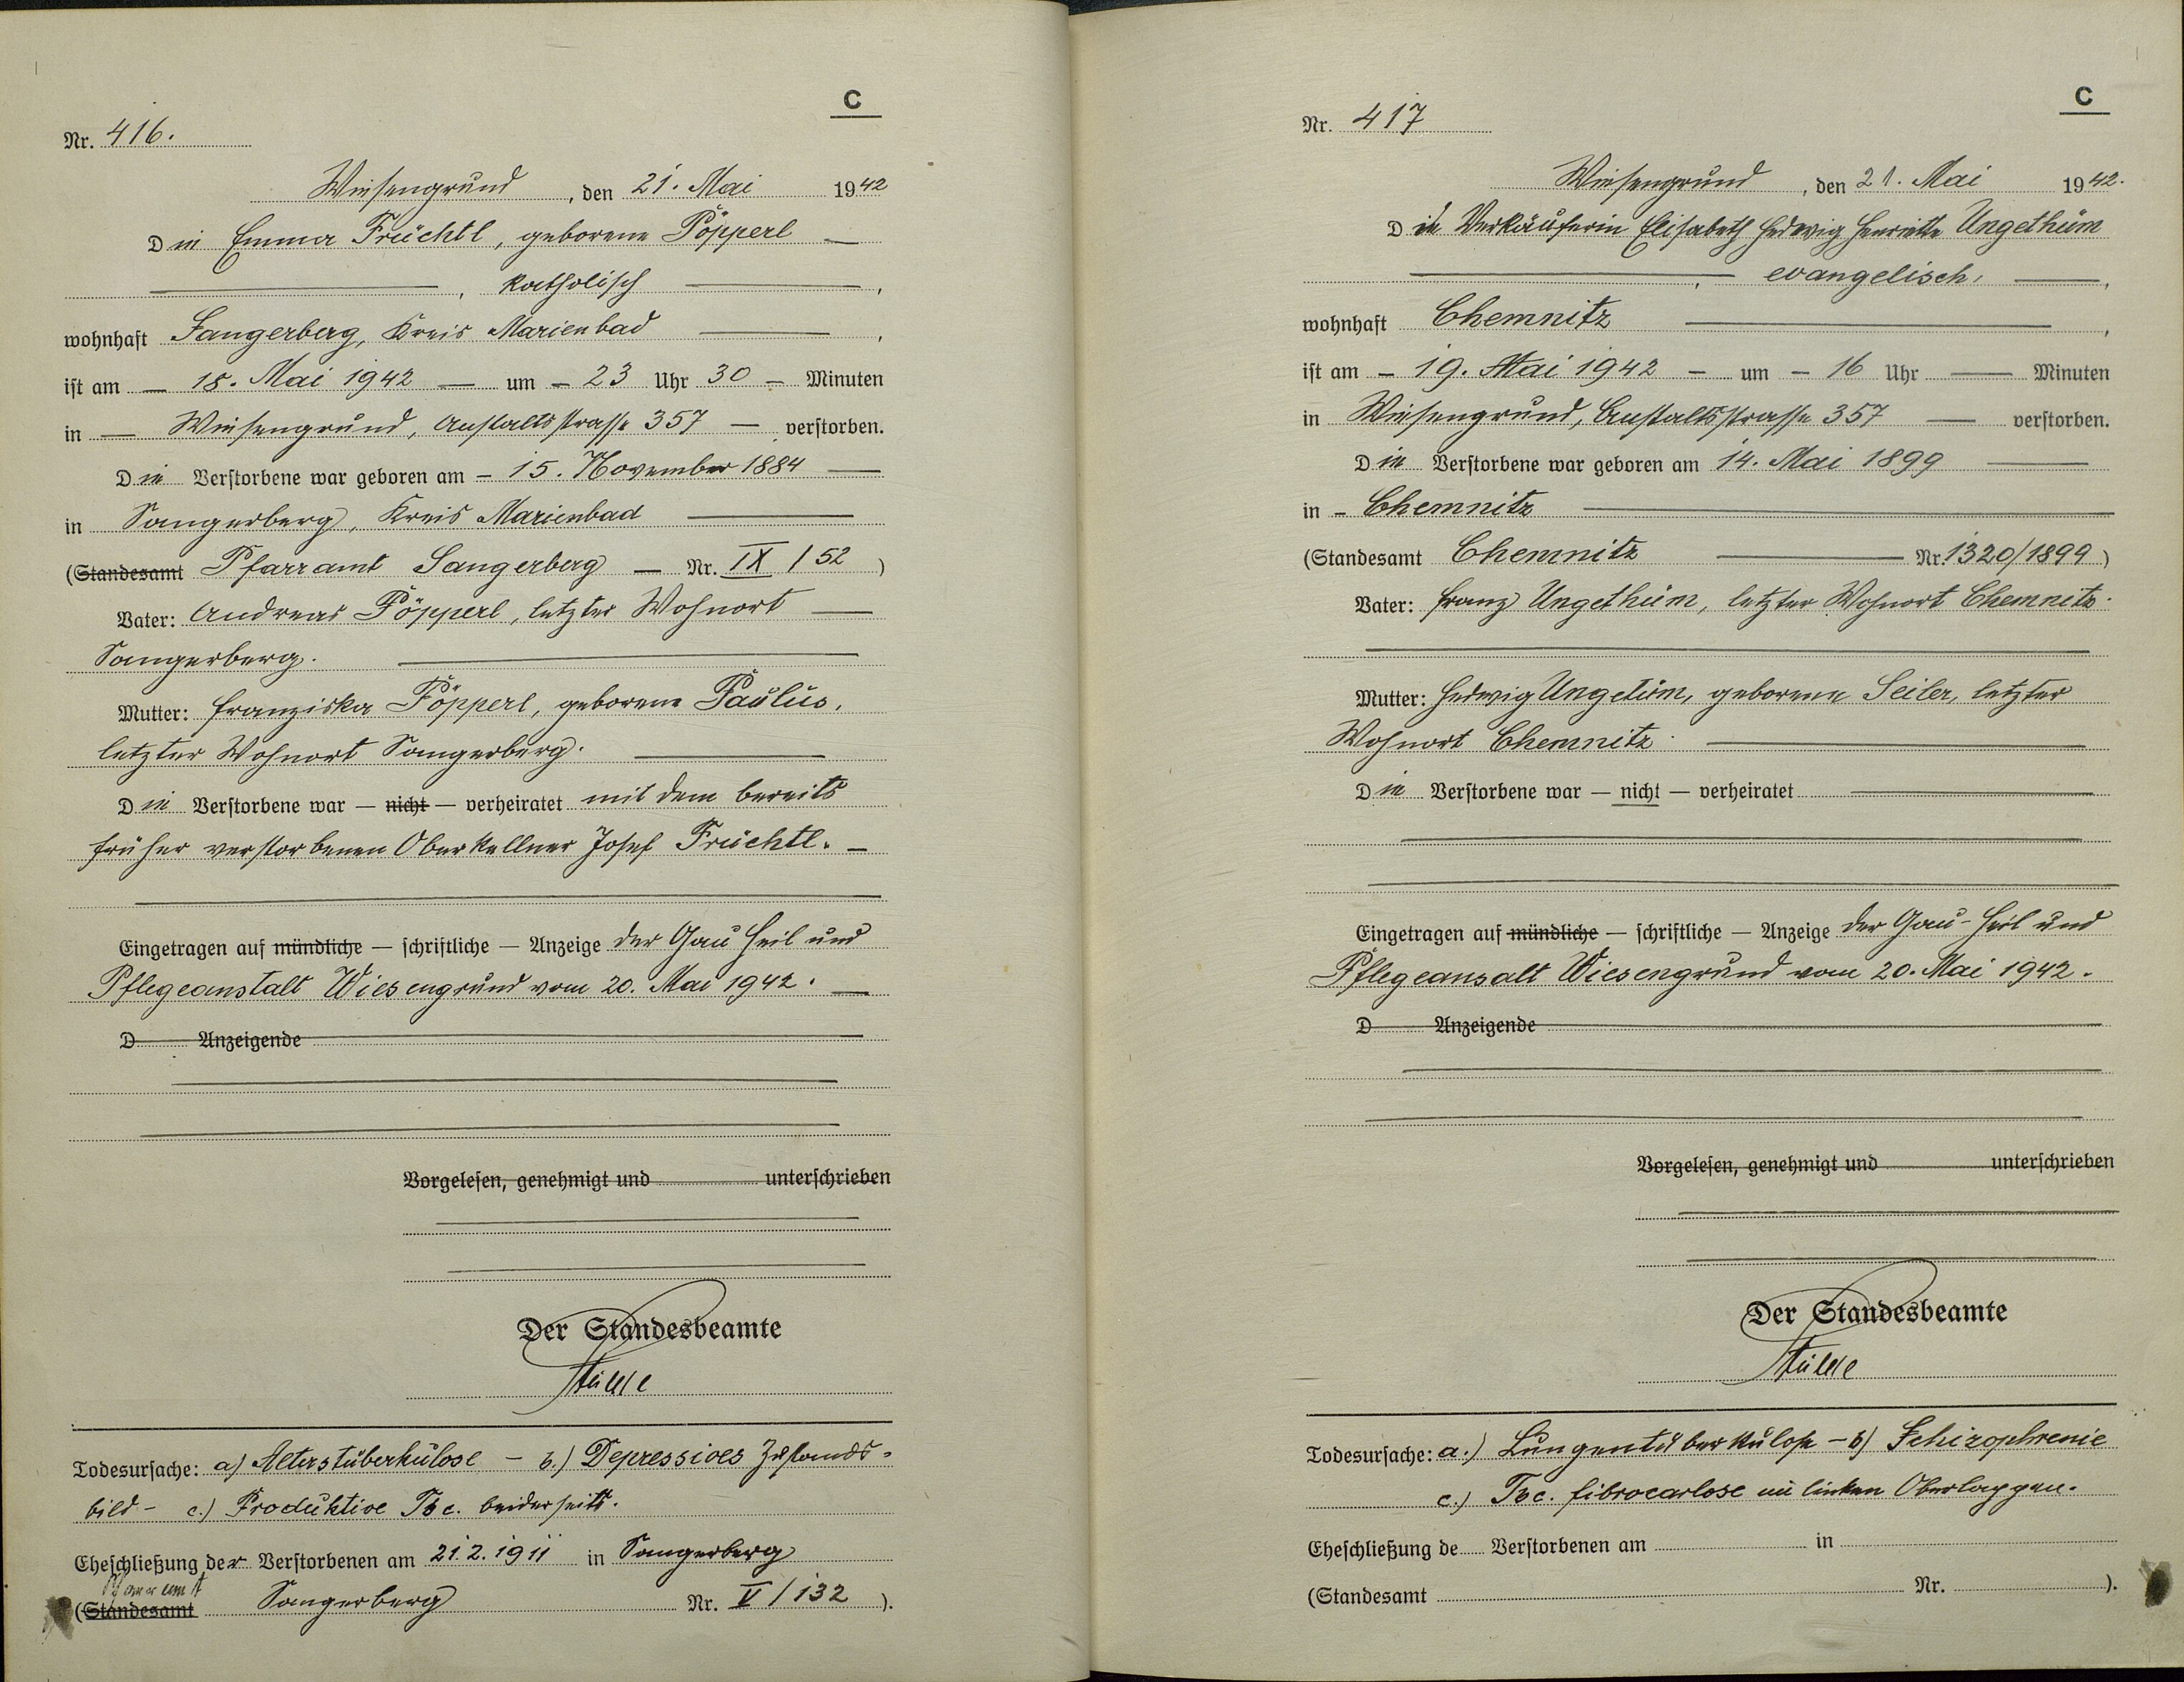 C
Nr. 416.
Wiesengrund, den 21. Mai 1942
Die Emma Früchtl, geborene Pöpperl —
—, katholisch —,
wohnhaft Sangerberg, Kreis Marienbad —,
ist am — 18. Mai 1942 — um — 23 Uhr 30 — Minuten
in — Wiesengrund, Anstaltsstrasse 357 — verstorben.
Die Verstorbene war geboren am — 15. November 1884 —
in Sangerberg, Kreis Marienbad —
(Standesamt Pfarramt Sangerberg — Nr. IX / 52)
Vater: Andreas Pöpperl, letzter Wohnort —
Sangerberg. —
Mutter: Franziska Pöpperl, geborene Paulus,
letzter Wohnort Sangerberg. —
Die Verstorbene war — nicht — verheiratet mit dem bereits
früher verstorbenen Oberkellner Josef Früchtl. —
Eingetragen auf mündliche — schriftliche — Anzeige der Gau Heil und
Pflegeanstalt Wiesengrund vom 20. Mai 1942. —
D Anzeigende
Vorgelesen, genehmigt und unterschrieben
Der Standesbeamte
Todesursache: a) Alterstuberkulose — b.) Depressives Zustands-
bild — c.) Produktive Tbc. beiderseits.
Eheschließung der Verstorbenen am 21.2.1911 in Sangerberg
Pfarramt
(Standesamt Sangerberg Nr. V / 132).
C
Nr. 417
Wiesengrund, den 21. Mai 1942.
Die Verkäuferin Elisabeth Hedwig Henriette Ungethüm
—, evangelisch, —,
wohnhaft Chemnitz —,
ist am — 19. Mai 1942 — um — 16 Uhr — Minuten
in Wiesengrund, Anstaltsstrasse 357 — verstorben.
Die Verstorbene war geboren am 14. Mai 1899 —
in — Chemnitz —
(Standesamt Chemnitz — Nr. 1320/1899)
Vater: Franz Ungethüm, letzter Wohnort Chemnitz.
Mutter: Hedwig Ungetüm, geborene Seiler, letzter
Wohnort Chemnitz. —
Die Verstorbene war — nicht — verheiratet —
Eingetragen auf mündliche — schriftliche — Anzeige der Gau-Heil und
Pflegeansalt Wiesengrund vom 20. Mai 1942.
D Anzeigende
Vorgelesen, genehmigt und unterschrieben
Der Standesbeamte
Todesursache: a.) Lungentuberkulose — b) Schizophrenie
c.) Tbc. fibrocarlose im linken Oberlappen.
Eheschließung de Verstorbenen am in
(Standesamt Nr. ).